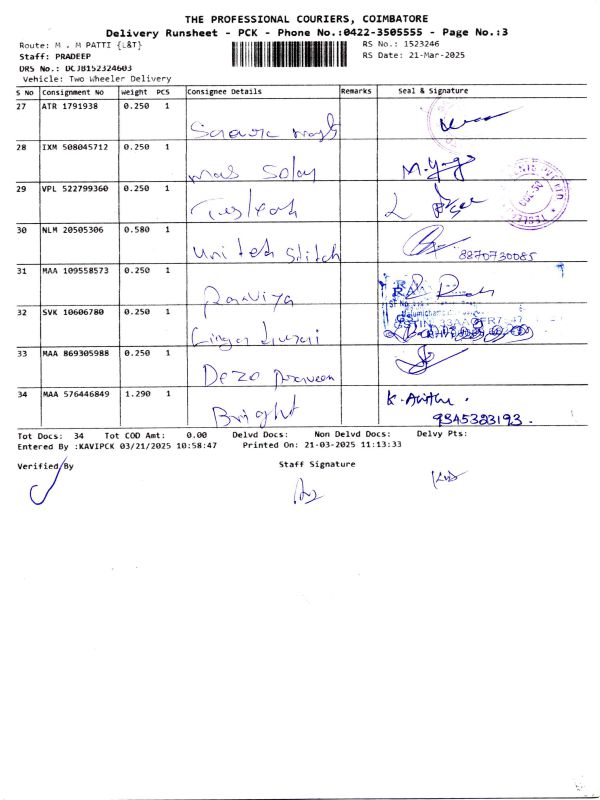 THE PROFESSIONAL COURIERS, COIMBATORE
Delivery Runsheet - PCK - Phone No.:0422-3505555 - Page No.:3
Route: M . M PATTI {L&T} RS No.: 1523246
Staff: PRADEEP RS Date: 21-Mar-2025
DRS No.: DCJB152324603
Vehicle: Two Wheeler Delivery
S No Consignment No Weight PCS Consignee Details Remarks Seal & Signature
27 ATR 1791938 0.250 1
28 IXM 508045712 0.250 1
mas Solar M.Yoga
29 VPL 522799360 0.250 1
30 NLM 20505306 0.580 1
United Stitch 8870730085
31 MAA 109558573 0.250 1
Ranviya
32 SVK 10606780 0.250 1
33 MAA 869305988 0.250 1
Dezo praveen
34 MAA 576446849 1.290 1
Bright K. Arithu.
9345323193.
Tot Docs: 34 Tot COD Amt: 0.00 Delvd Docs: Non Delvd Docs: Delvy Pts:
Entered By :KAVIPCK 03/21/2025 10:58:47 Printed On: 21-03-2025 11:13:33
Verified By Staff Signature